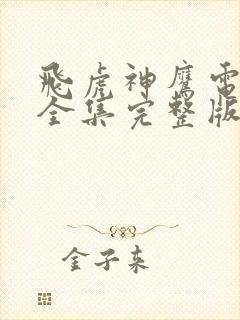 飛虎神鷹電
全集完整版
金子來